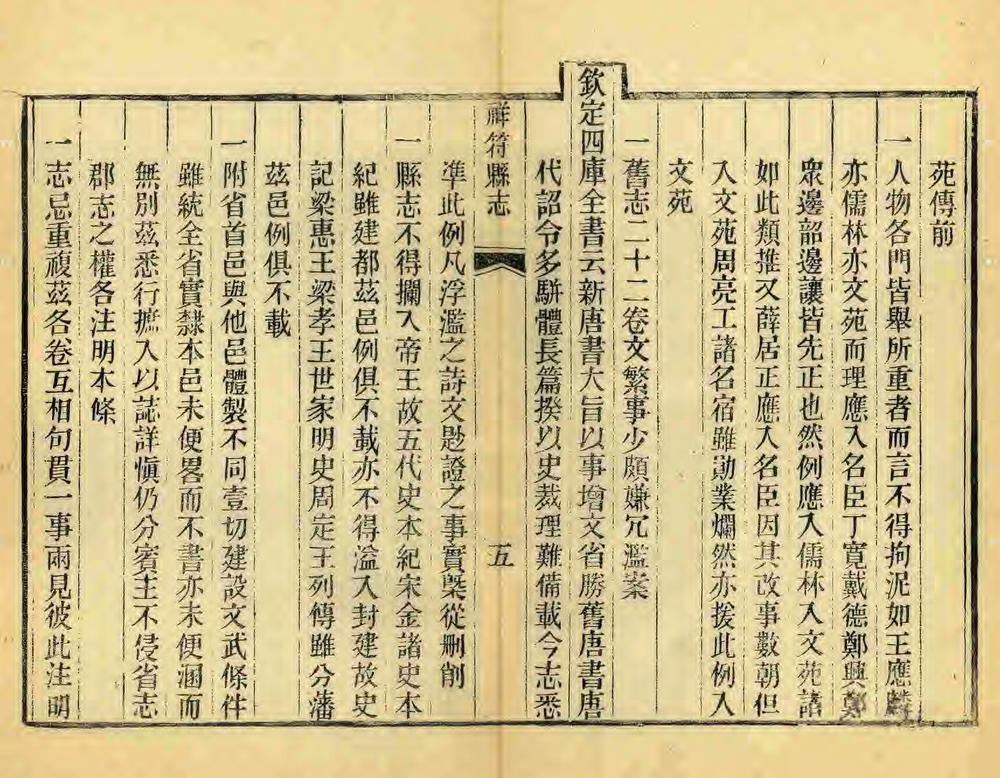 苑傳前
一人物各門皆舉所重者而言不得拘泥如王應麟
亦儒林亦文苑而理應入名臣丁寬戴德鄭興鄭
衆邊韶邊讓皆先正也然例應入儒林入文苑諸
如此類推又薛居正應入名臣因其改事數朝但
入文苑周亮工諸名宿雖勛業爛然亦援此例入
文苑
一舊志二十二卷文繁事少頗嫌冗濫案
欽定四庫全書云新唐書大旨以事增文省勝舊唐書唐
代詔令多駢體長篇揆以史裁理難備載今志悉
祥符縣志
五
準此例凡浮濫之詩文尠證之事實槩從刪削
一縣志不得攔入帝王故五代史本紀宋金諸史本
紀雖建都茲邑例俱不載亦不得溢入封建故史
記梁惠王梁孝王世家明史周定王列傳雖分藩
茲邑例俱不載
一附省首邑與他邑體製不同壹切建設文武條件
雖統全省實隸本邑未便畧而不書亦未便涵而
無別茲悉行摭入以誌詳愼仍分賓主不侵省志
郡志之權各注明本條
一志忌重複茲各卷互相句貫一事兩見彼此注明